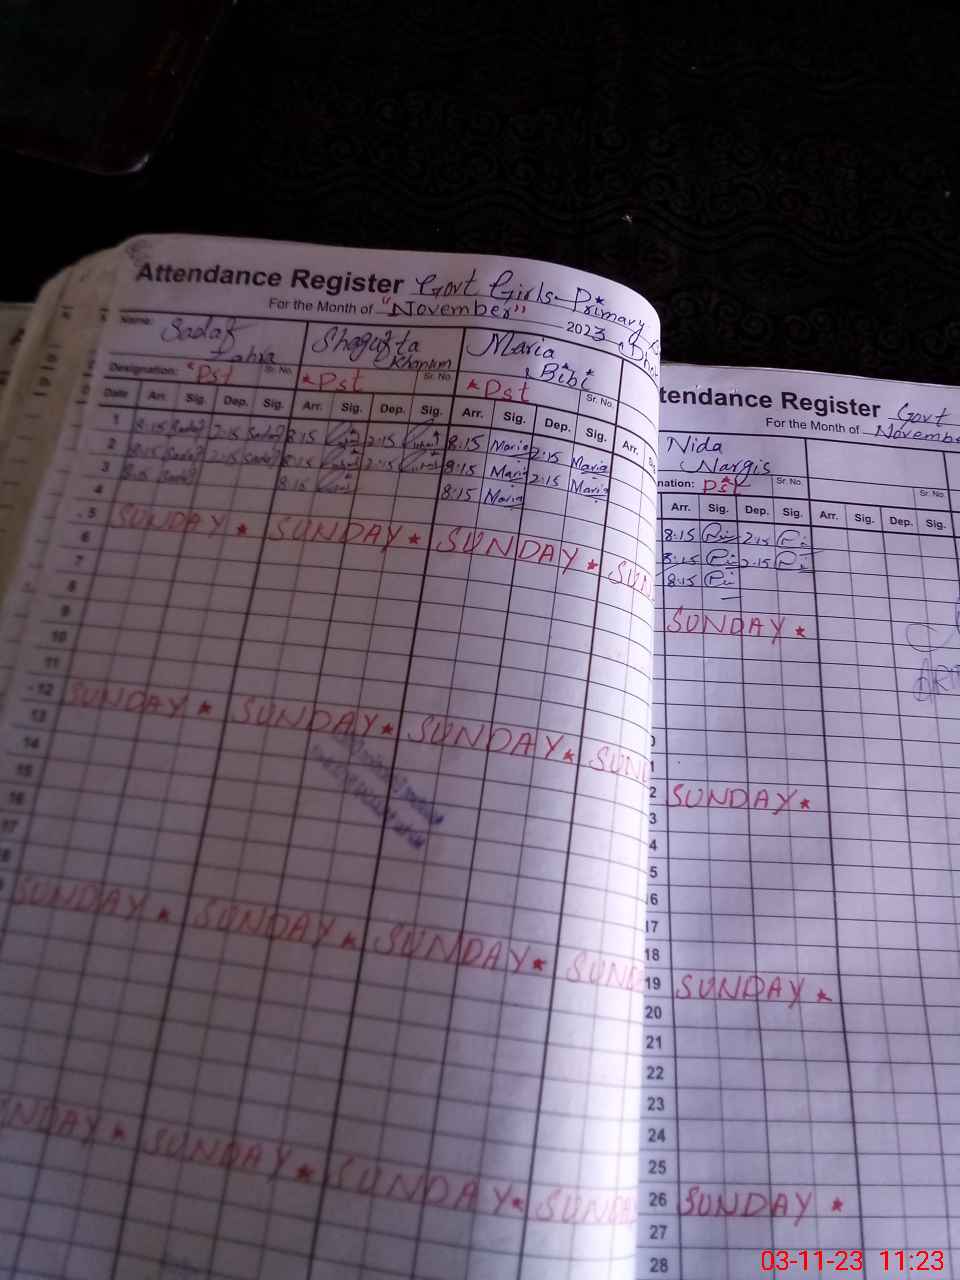 Attendance Register Govt Girls Primary
For the Month of "November" 2023
Name: Sadaf Zahra Shagufta Khanum Maria Bibi
Designation: *Pst Sr. No. *Pst Sr. No. *Pst Sr. No.
Date Arr. Sig. Dep. Sig. Arr. Sig. Dep. Sig. Arr. Sig. Dep. Sig. Arr.
1 8:15 Sadaf 2:15 Sadaf 8:15 2:15 8:15 Maria 2:15 Maria
2 8:15 Sadaf 2:15 Sadaf 8:15 2:15 8:15 Maria 2:15 Maria
3 8:15 Sadaf 8:15 8:15 Maria
4
5 SUNDAY * SUNDAY * SUNDAY * SUN
6
7
8
9
10
11
12 SUNDAY * SUNDAY * SUNDAY * SUN
13
14
15
16
17
SUNDAY * SUNDAY * SUNDAY * SUN
NDAY * SUNDAY * SUNDAY * SUND
tendance Register Govt
For the Month of Novembe
Nida Nargis
nation: Pst Sr. No. Sr. No.
Arr. Sig. Dep. Sig. Arr. Sig. Dep. Sig.
8:15 2:15
8:15 2:15
8:15
SUNDAY *
2 SUNDAY *
3
4
5
16
17
18
19 SUNDAY *
20
21
22
23
24
25
26 SUNDAY *
27
28
03-11-23 11:23